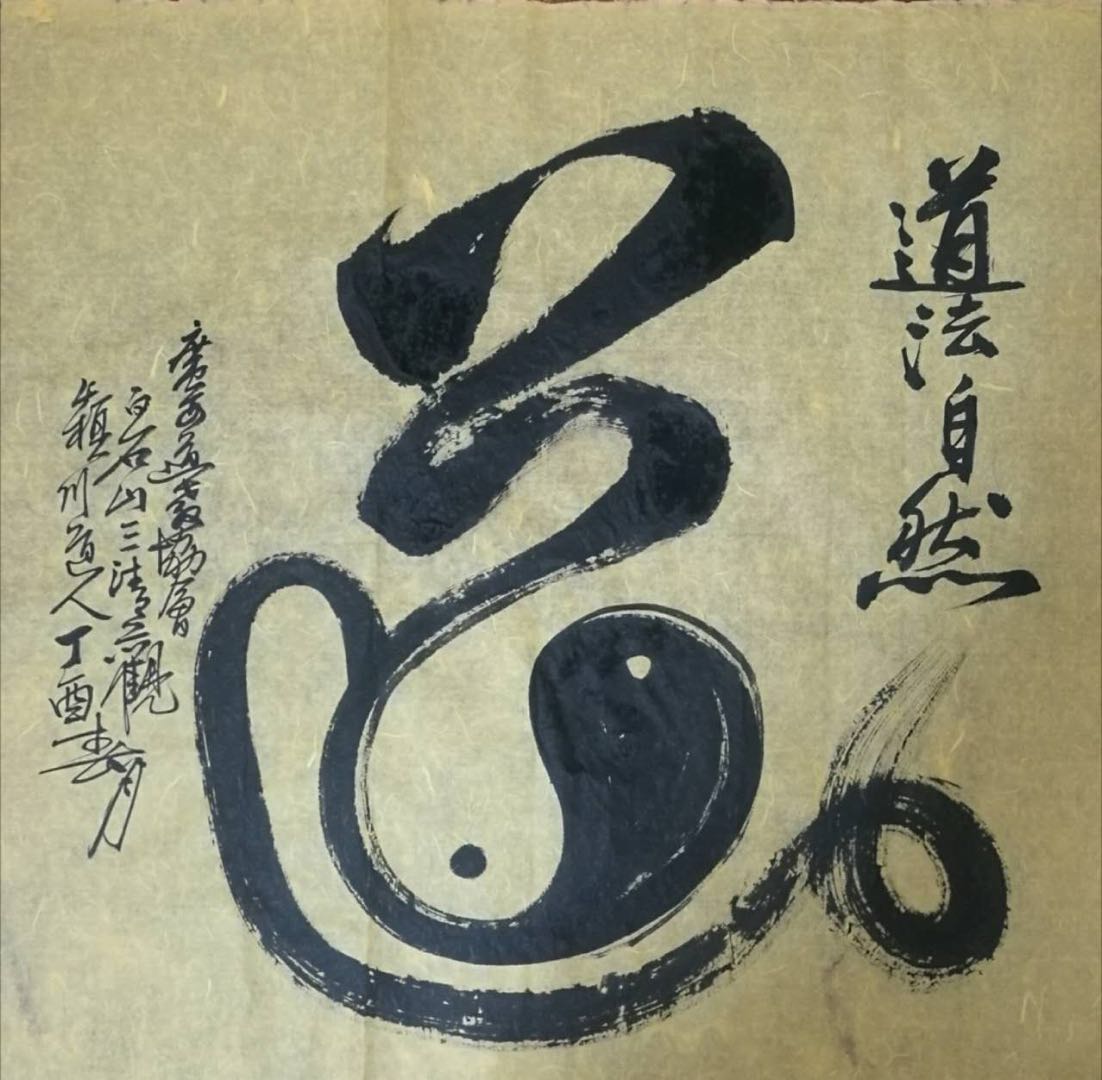 道法自然
道
廣西道教協會
白石山三清觀
穎川道人丁酉春月